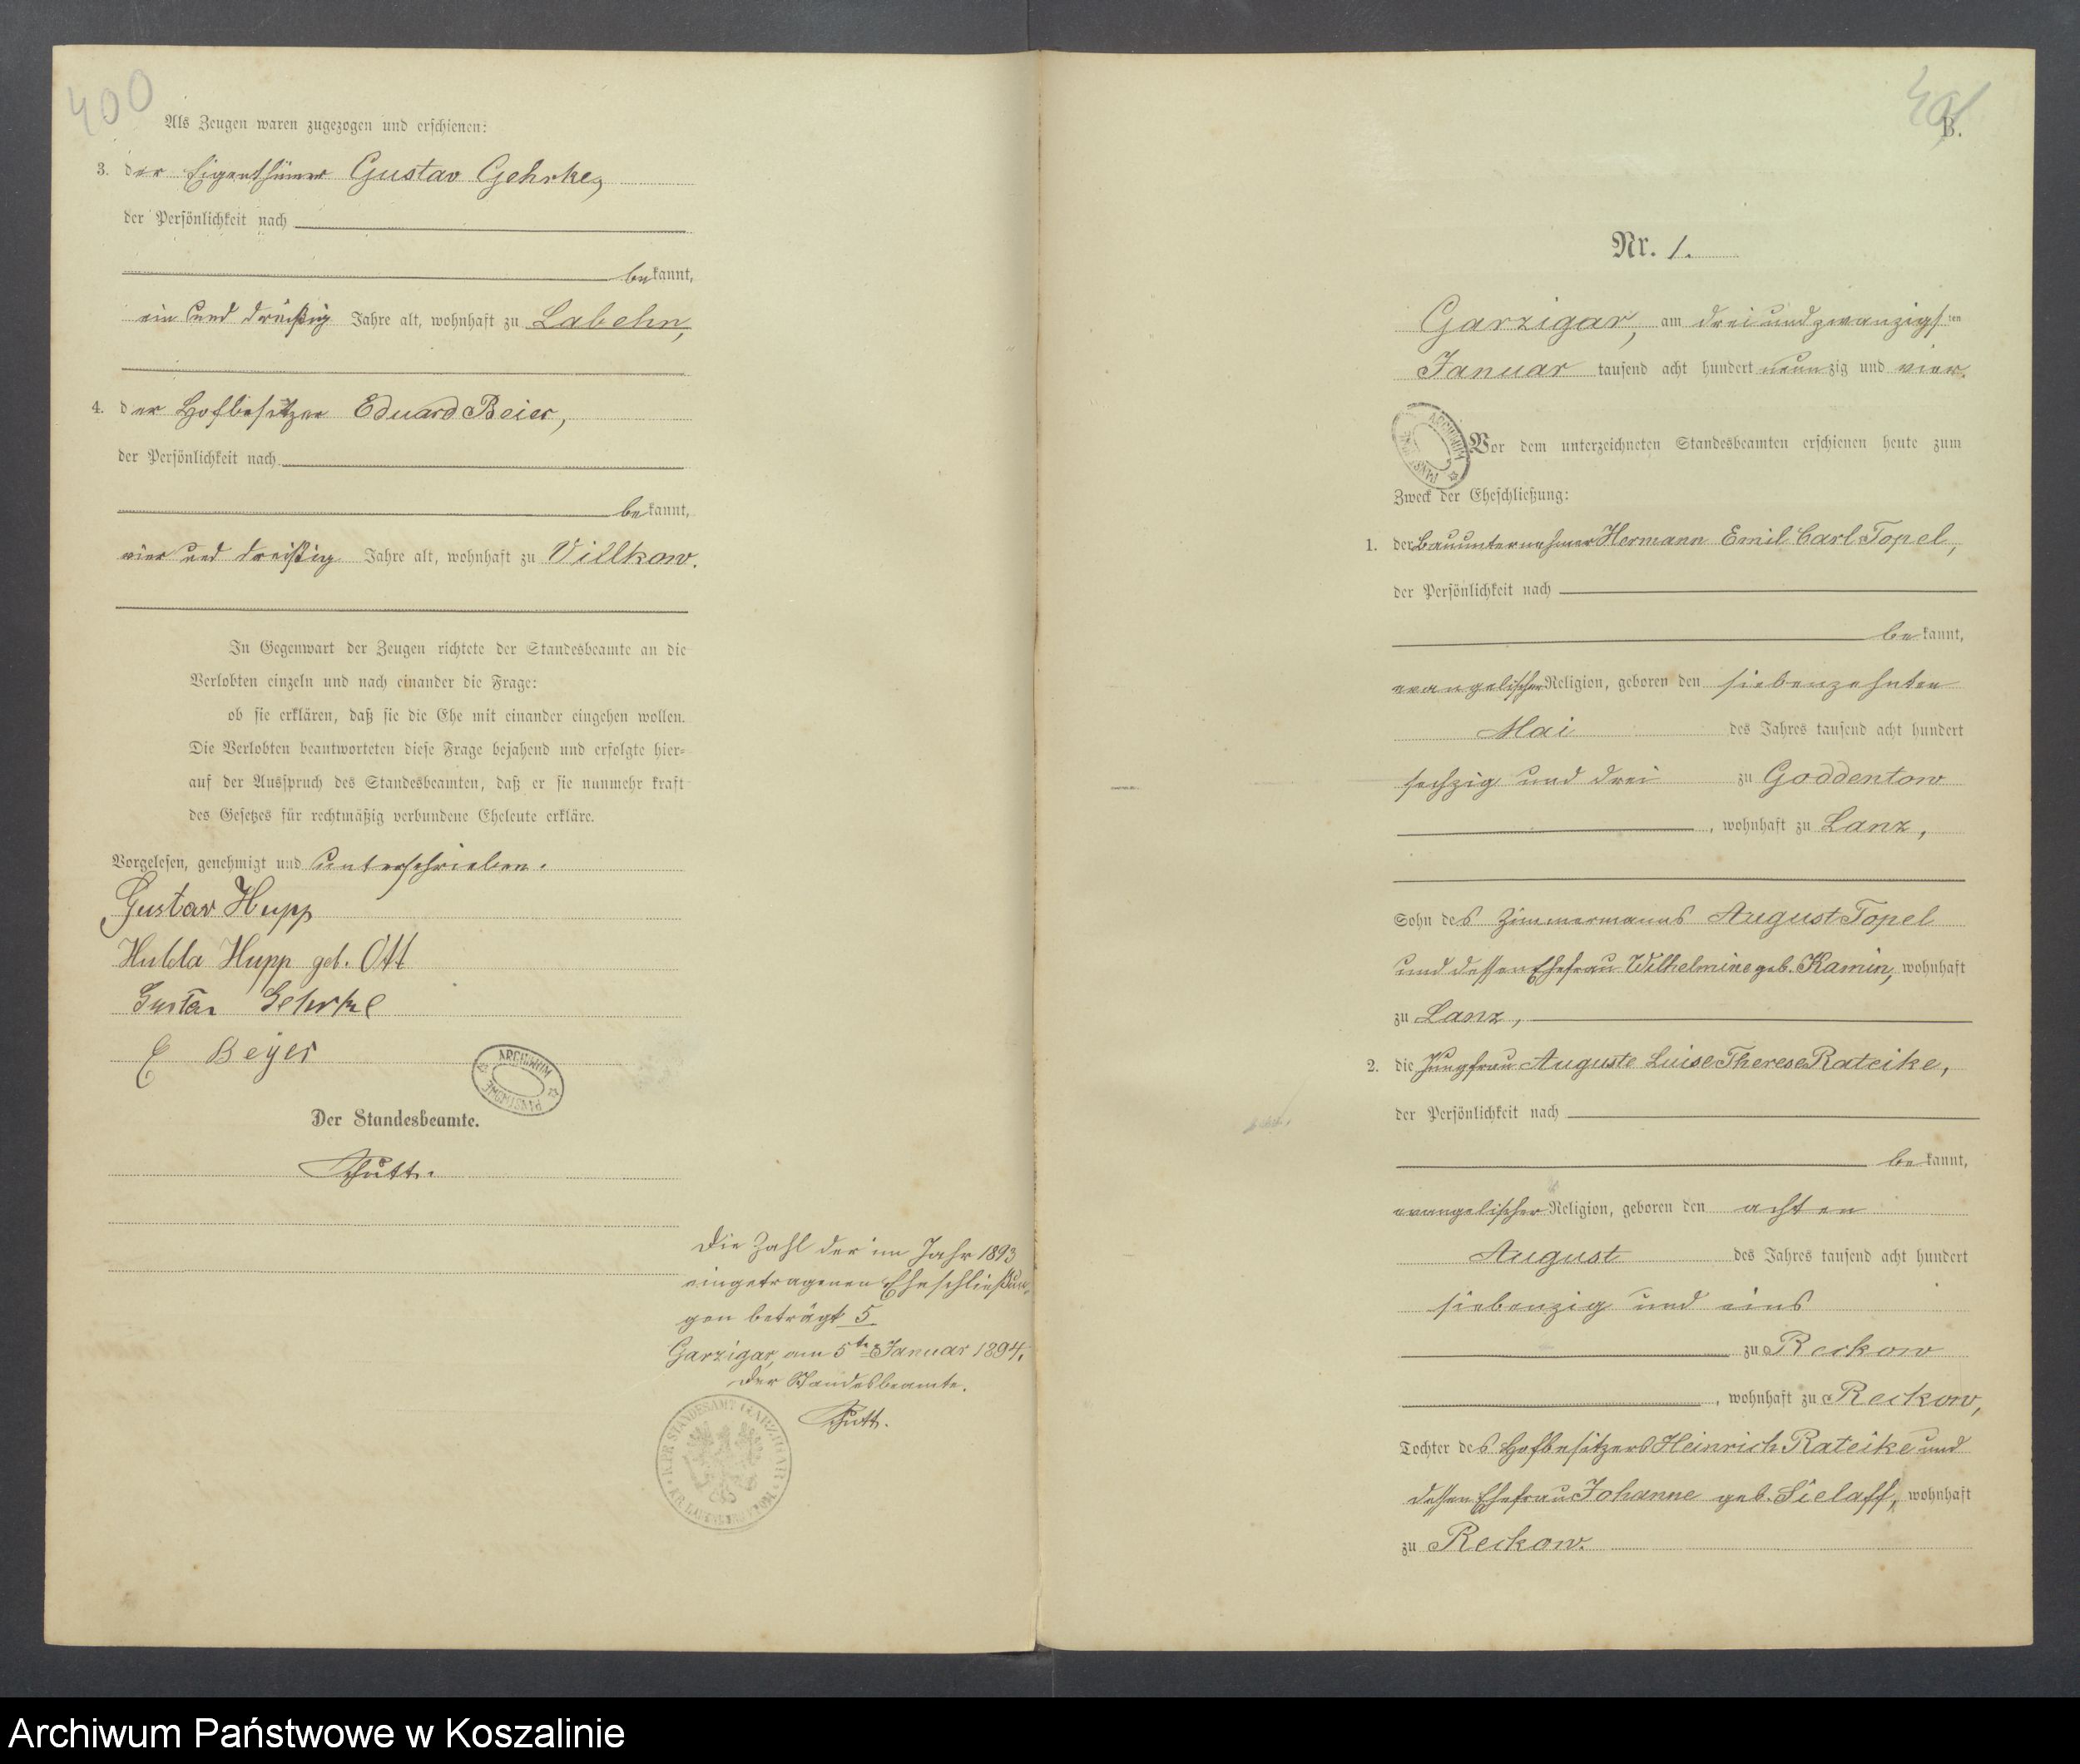 400
Als Zeugen waren zugezogen und erschienen:
3. der Eigenthümer Gustav Gehrke,
der Persönlichkeit nach
bekannt,
ein und dreißig Jahre alt, wohnhaft zu Labehn,
4. der Hofbesitzer Eduard Beier,
der Persönlichkeit nach
bekannt,
vier und dreißig Jahre alt, wohnhaft zu Villkow.
In Gegenwart der Zeugen richtete der Standesbeamte an die
Verlobten einzeln und nach einander die Frage:
ob sie erklären, daß sie die Ehe mit einander eingehen wollen.
Die Verlobten beantworteten diese Frage bejahend und erfolgte hier-
auf der Ausspruch des Standesbeamten, daß er sie nunmehr kraft
des Gesetzes für rechtmäßig verbundene Eheleute erkläre.
Vorgelesen, genehmigt und unterschrieben.
Gustav Hupp
Hulda Hupp geb. Ott
Gustav Gehrke
E Beyer
ARCHIWUM PAŃSTWOWE
Der Standesbeamte.
Die Zahl der im Jahr 1893
eingetragenen Eheschließun-
gen beträgt 5
Garzigar, am 5ten Januar 1894.
Der Standesbeamte.
K. PR. STANDESAMT GARZIGAR
401
B.
Nr. 1.
Garzigar, am drei und zwanzigsten
Januar tausend acht hundert neunzig und vier.
ARCHIWUM PAŃSTWOWE
Vor dem unterzeichneten Standesbeamten erschienen heute zum
Zweck der Eheschließung:
1. der Bauunternehmer Hermann Emil Carl Topel,
der Persönlichkeit nach
bekannt,
evangelischer Religion, geboren den siebenzehnten
Mai des Jahres tausend acht hundert
sechzig und drei zu Goddentow
, wohnhaft zu Lanz,
Sohn des Zimmermanns August Topel
und dessen Ehefrau Wilhelmine geb. Kamin, wohnhaft
zu Lanz,
2. die Jungfrau Auguste Luise Therese Rateike,
der Persönlichkeit nach
bekannt,
evangelischer Religion, geboren den achten
August des Jahres tausend acht hundert
siebenzig und eins
zu Reckow
, wohnhaft zu Reckow,
Tochter des Hofbesitzers Heinrich Rateike und
dessen Ehefrau Johanne geb. Sielaff, wohnhaft
zu Reckow.
Archiwum Państwowe w Koszalinie